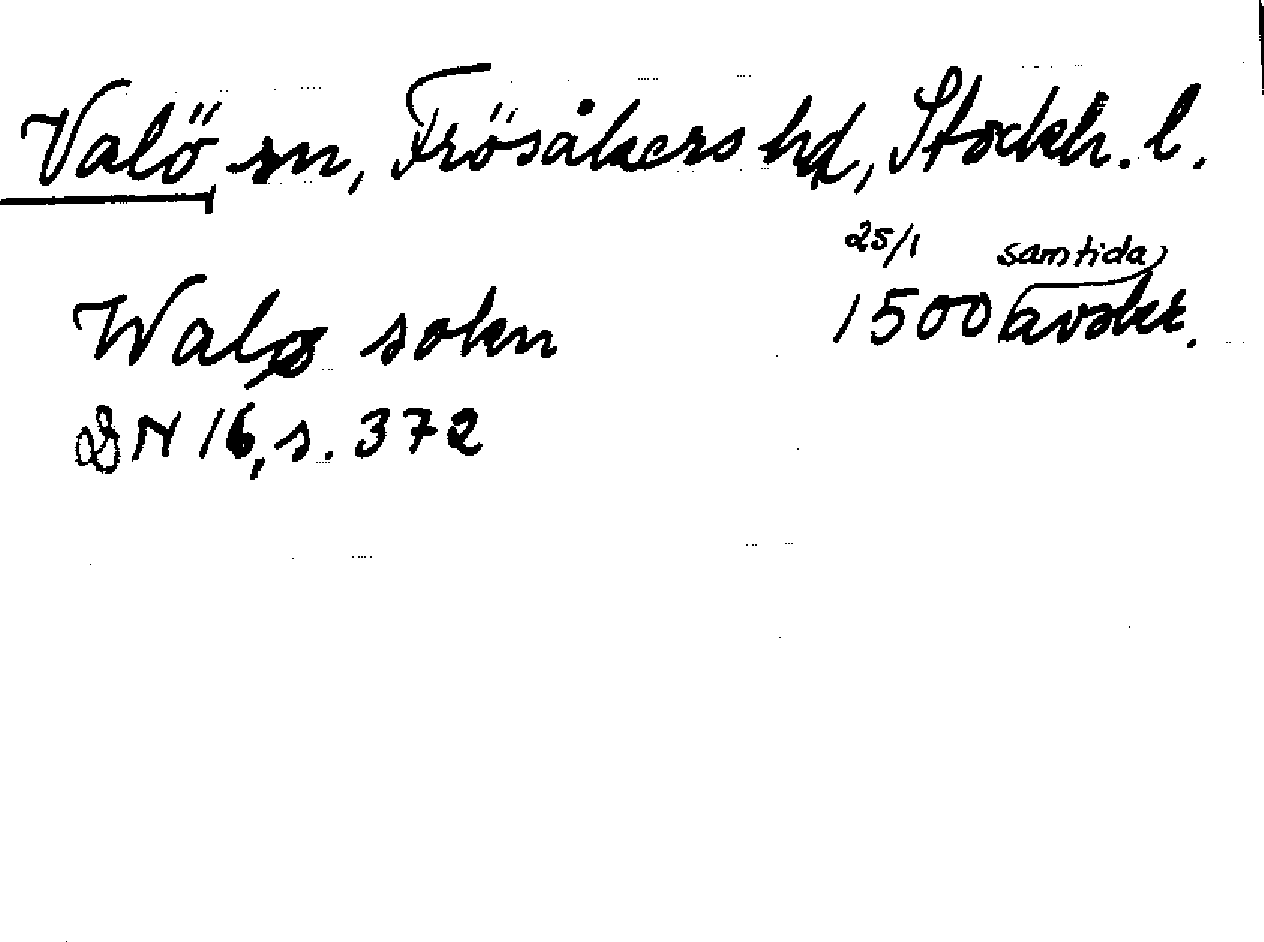 Valö sn, Frösåkers hd, Stockh. l.
25/1 samtida
Walø sokn 1500 avskr.
DN 16, s. 372